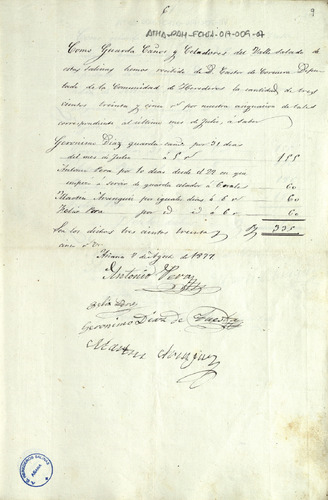 6
9
ATHA-RAH-FCH-1-017-009-07
Como Guarda Caños y Celadores del Valle salado de
estas salinas hemos recibido de D. Castor de Diputa
do de la Comunidad de Herederos la cantidad de tres
cientos treinta y cinco rs por nuestra asignacion de
correspondiente al ultimo mes de Julio, á saber
Geronimo Diaz guarda-caños por 31 dias
del mes de Julio á 5 rs 155
Antonio Vera por 10 dias desde el 22 en que
empezó á servir de guarda celador á 6 reales 60
Martin por iguales dias á 6 rs 60
Felix Vera por id id á 6 rs 60
Son los dichos tres cientos treinta y 335
cinco rs
Añana 2 de Agost. de 1877
Antonio Vera
Felix Vera
Geronimo Diaz de
Martin